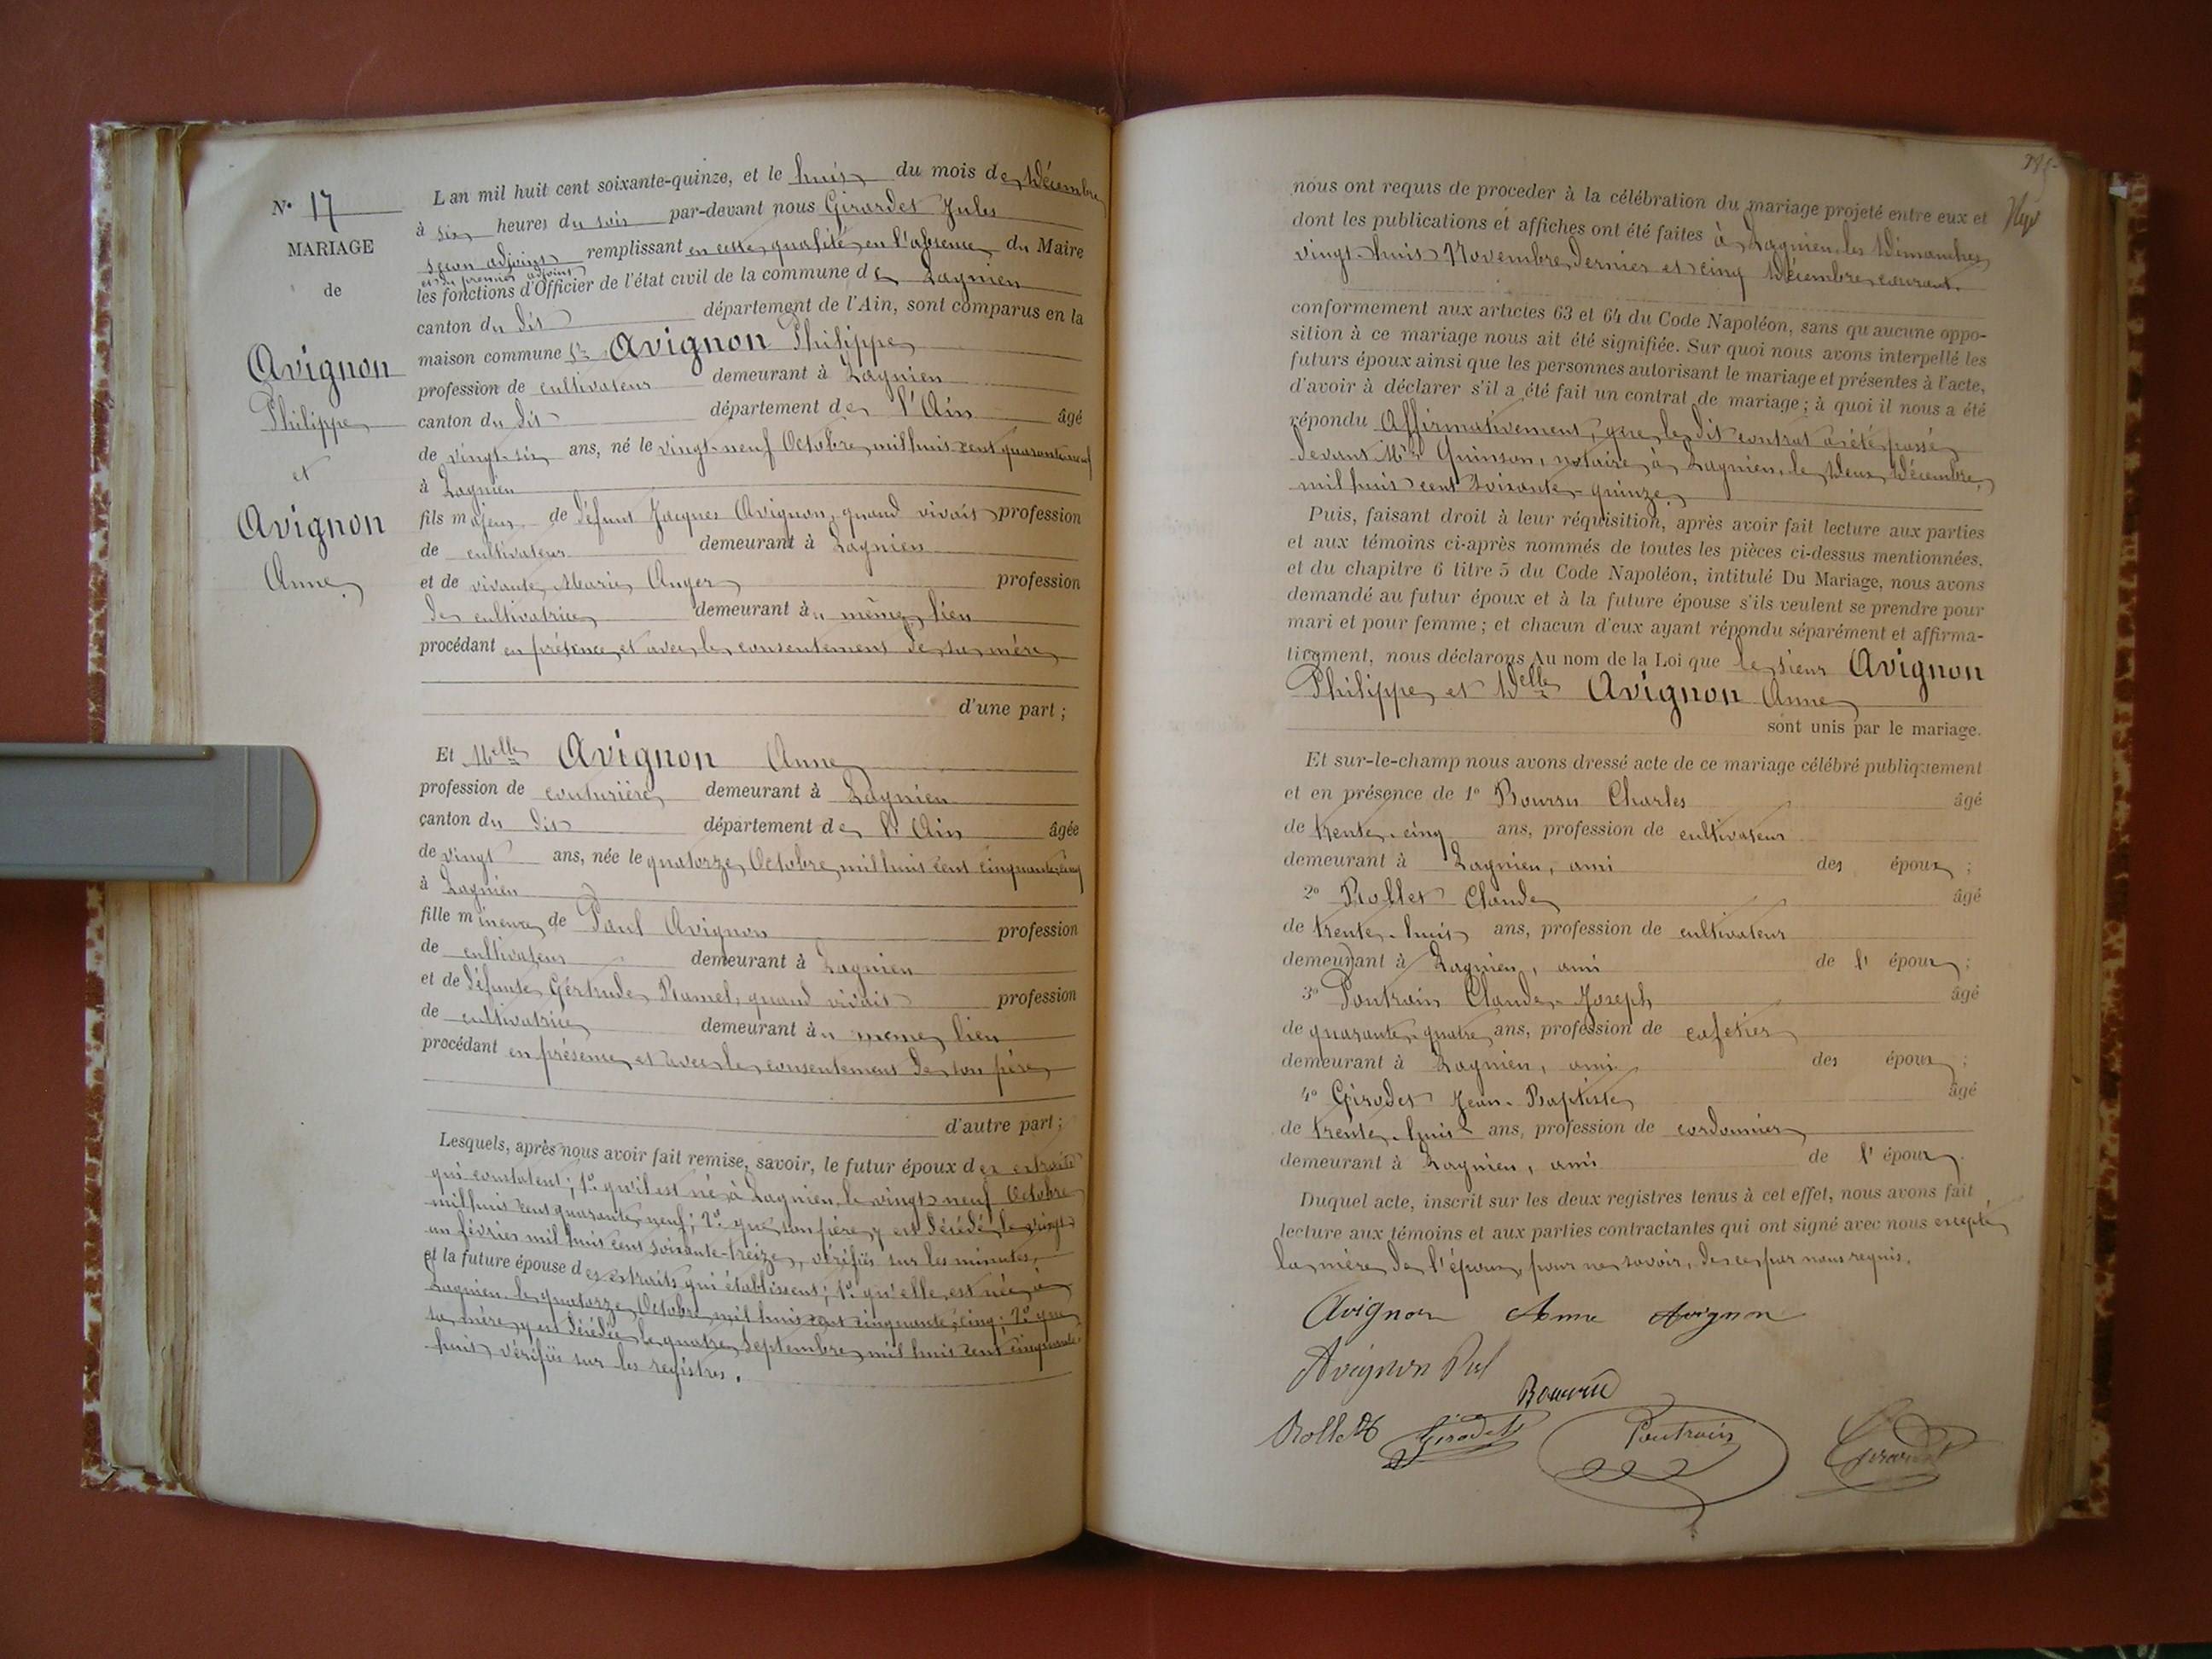 N° 17
MARIAGE
de
Avignon
Philippe
et
Avignon
Anne
L'an mil huit cent soixante-quinze, et le huit du mois de Décembre
à six heures du soir par-devant nous Girardet Jules
adjoint remplissant en cette qualité en l'absence du Maire
et du premier adjoint
les fonctions d'Officier de l'état civil de la commune de Lagnieu
canton du dit département de l'Ain, sont comparus en la
maison commune Sr Avignon Philippe
profession de cultivateur demeurant à Lagnieu
canton du dit département de l'Ain âgé
de vingt-six ans, né le vingt-neuf Octobre mil huit cent quarante-neuf
à Lagnieu
fils majeur de défunt Jacques Avignon, quand vivait profession
de cultivateur demeurant à Lagnieu
et de vivante Marie Anger profession
de cultivatrice demeurant au même lieu
procédant en présence et avec le consentement de sa mère
d'une part ;
Et Melle Avignon Anne
profession de couturière demeurant à Lagnieu
canton du dit département de l'Ain âgée
de vingt ans, née le quatorze Octobre mil huit cent cinquante-cinq
à Lagnieu
fille mineure de Paul Avignon profession
de cultivateur demeurant à Lagnieu
et de défunte Gértrude Ramel, quand vivait profession
de cultivatrice demeurant au même lieu
procédant en présence et avec le consentement de son père
d'autre part ;
Lesquels, après nous avoir fait remise, savoir, le futur époux des extraits
qui constatent ; 1° qu'il est né à Lagnieu, le vingt-neuf Octobre
mil huit cent quarante-neuf ; 2° que son père y est décédé le vingt
un février mil huit cent soixante-treize, vérifiés sur les minutes,
et la future épouse des extraits qui établissent ; 1° qu'elle est née à
Lagnieu, le quatorze Octobre mil huit cent cinquante-cinq ; 2° que
sa mère y est décédée le quatre Septembre mil huit cent cinquante
huit vérifiés sur les registres.
nous ont requis de proceder à la célébration du mariage projeté entre eux et
dont les publications et affiches ont été faites à Lagnieu, les Dimanches
vingt-huit Novembre dernier et cinq Décembre courant.
conformement aux articles 63 et 64 du Code Napoléon, sans qu'aucune oppo-
sition à ce mariage nous ait été signifiée. Sur quoi nous avons interpellé les
futurs époux ainsi que les personnes autorisant le mariage et présentes à l'acte,
d'avoir à déclarer s'il a été fait un contrat de mariage ; à quoi il nous a été
répondu Affirmativement, que le dit contrat a été passé
devant Me Quinson, notaire à Lagnieu, le deux Décembre,
mil huit cent soixante-quinze.
Puis, faisant droit à leur réquisition, après avoir fait lecture aux parties
et aux témoins ci-après nommés de toutes les pièces ci-dessus mentionnées,
et du chapitre 6 titre 5 du Code Napoléon, intitulé Du Mariage, nous avons
demandé au futur époux et à la future épouse s'ils veulent se prendre pour
mari et pour femme ; et chacun d'eux ayant répondu séparément et affirma-
tivement, nous déclarons Au nom de la Loi que le sieur Avignon
Philippe et Delle Avignon Anne
sont unis par le mariage.
Et sur-le-champ nous avons dressé acte de ce mariage célébré publiquement
et en présence de 1° Bourru Charles âgé
de trente-cinq ans, profession de cultivateur
demeurant à Lagnieu, ami des époux ;
2° Rollet Claude âgé
de trente-huit ans, profession de cultivateur
demeurant à Lagnieu, ami de l'époux ;
3° Poutrain Claude-Joseph âgé
de quarante-quatre ans, profession de cafetier
demeurant à Lagnieu, ami des époux ;
4° Girodet Jean-Baptiste âgé
de trente-huit ans, profession de cordonnier
demeurant à Lagnieu, ami de l'époux.
Duquel acte, inscrit sur les deux registres tenus à cet effet, nous avons fait
lecture aux témoins et aux parties contractantes qui ont signé avec nous excepté
la mère de l'époux, pour ne savoir, de ce par nous requis.
Avignon Anne Avignon
Avignon
Rollet Girodet Poutrain